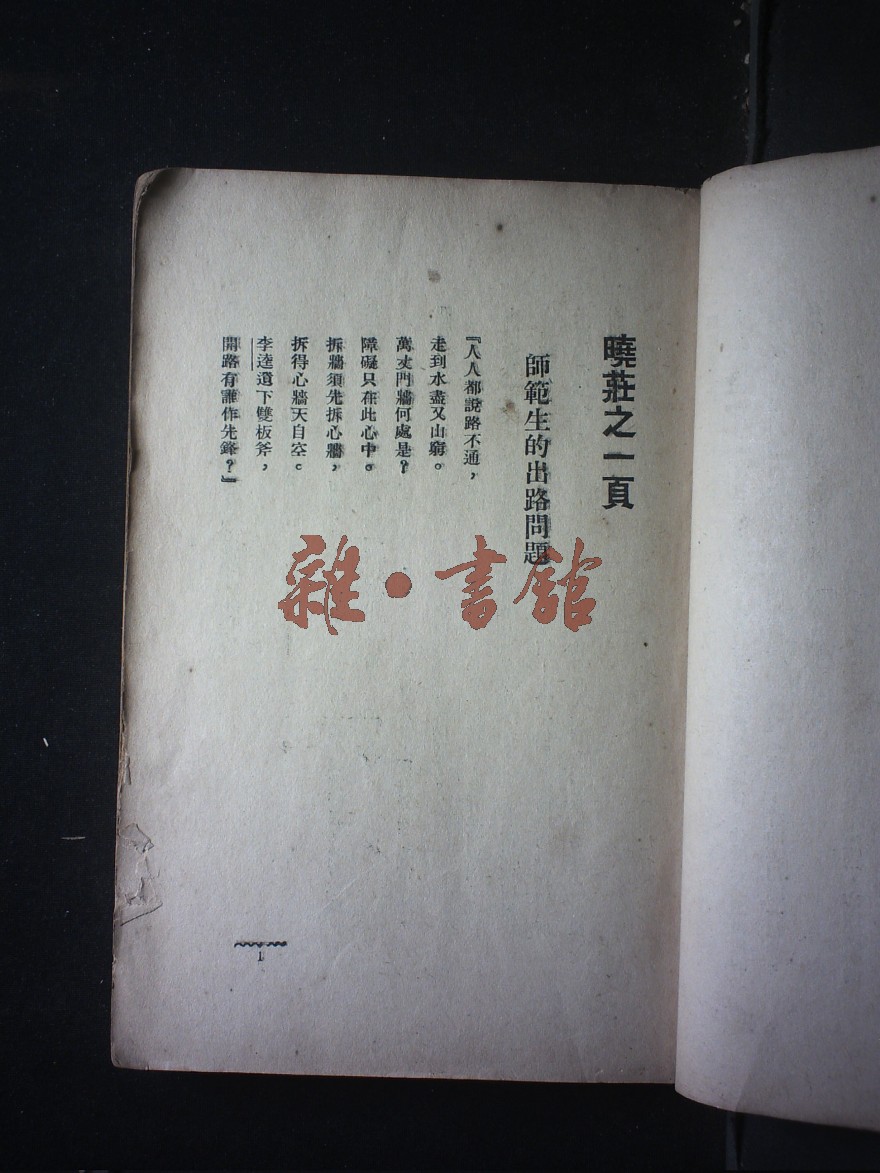 曉莊之一頁
師範生的出路問題
『人人都說路不通，
走到水盡又山窮。
萬丈門牆何處是？
障礙只在此心中。
拆牆須先拆心牆，
拆得心牆天自空。
李逵遺下雙板斧，
開路有誰作先鋒？』
1
雜·書館